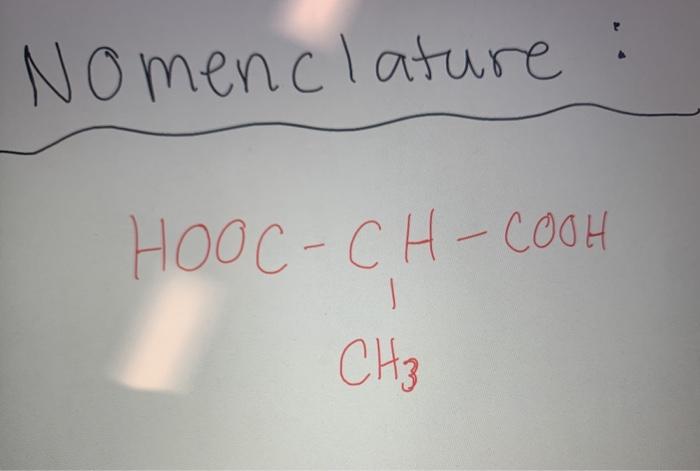 Nomenclature :
HOOC - CH - COOH
|
CH3